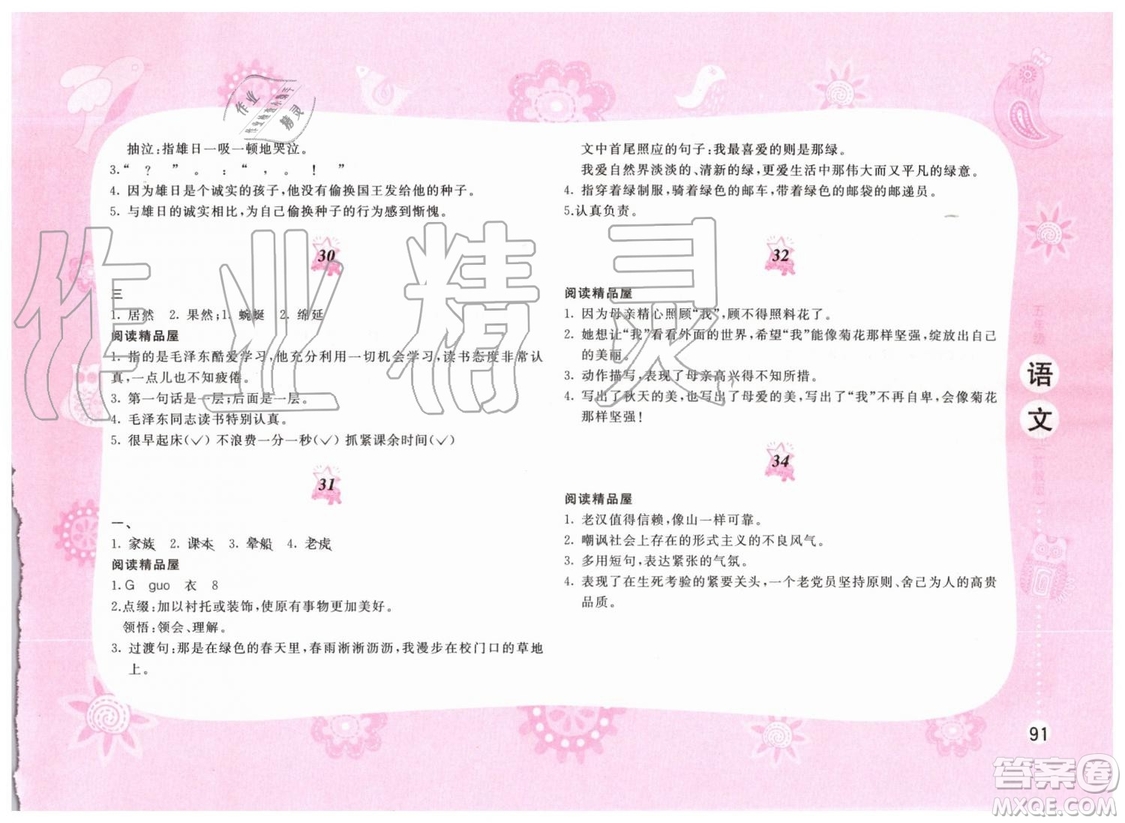 抽泣:指雄日一吸一顿地哭泣。
3.“　？　”　。　：“　，　。　！　”
4. 因为雄日是个诚实的孩子,他没有偷换国王发给他的种子。
5. 与雄日的诚实相比,为自己偷换种子的行为感到惭愧。
30
三
1. 居然　2. 果然;1. 蜿蜒　2. 绵延
阅读精品屋
1. 指的是毛泽东酷爱学习,他充分利用一切机会学习,读书态度非常认
真,一点儿也不知疲倦。
3. 第一句话是一层;后面是一层。
4. 毛泽东同志读书特别认真。
5. 很早起床(✓)　不浪费一分一秒(✓)　抓紧课余时间(✓)
31
一、
1. 家族　2. 课本　3. 晕船　4. 老虎
阅读精品屋
1.G　guo　衣　8
2.点缀:加以衬托或装饰,使原有事物更加美好。
领悟:领会、理解。
3. 过渡句:那是在绿色的春天里,春雨淅淅沥沥,我漫步在校门口的草地
上。
文中首尾照应的句子:我最喜爱的则是那绿。
我喜爱自然界淡淡的、清新的绿,更爱生活中那伟大而又平凡的绿意。
4. 指穿着绿制服,骑着绿色的邮车,带着绿色的邮袋的邮递员。
5.认真负责。
32
阅读精品屋
1. 因为母亲精心照顾“我”,顾不得照料花了。
2. 她想让“我”看看外面的世界,希望“我”能像菊花那样坚强,绽放自己
的美丽。
3. 动作描写,表现了母亲高兴得不知所措。
4. 写出了秋天的美,也写出了母爱的美,写出了“我”不再自卑,会像菊花
那样坚强！
34
阅读精品屋
1. 老汉值得信赖,像山一样可靠。
2. 嘲讽社会上存在的形式主义的不良风气。
3. 多用短句,表达紧张的气氛。
4. 表现了在生死考验的紧要关头,一个老党员坚持原则、舍己为人的高贵
品质。
五年级
语
文
91
作业精灵
作业
精灵
答案圈
MXQE.COM